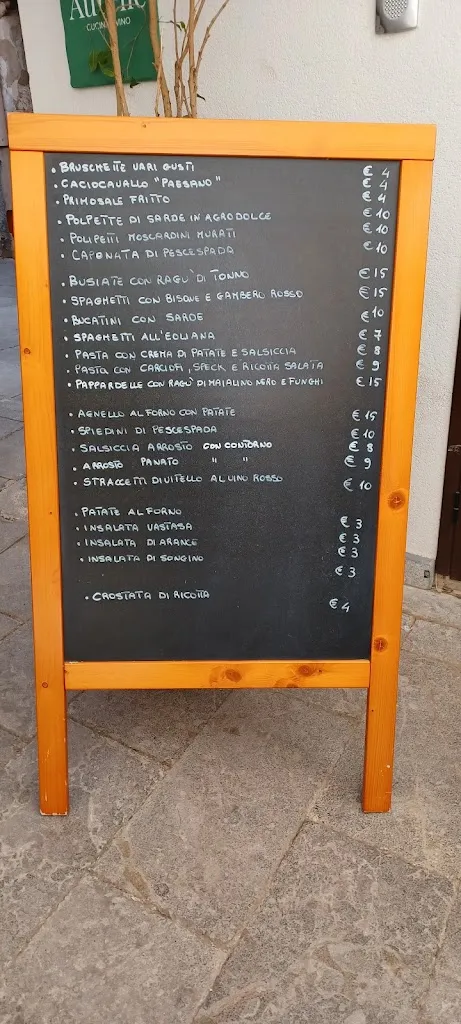 CUCINA VINO
• BRUSCHETTE VARI GUSTI € 4
• CACIOCAVALLO "PAESANO" € 4
• PRIMOSALE FRITTO € 4
• POLPETTE DI SARDE IN AGRODOLCE € 10
• POLIPETTI MOSCARDINI MURATI € 10
• CAPONATA DI PESCESPADA € 10
• BUSIATE CON RAGU' DI TONNO € 15
• SPAGHETTI CON BISQUE E GAMBERO ROSSO € 15
• BUCATINI CON SARDE € 10
• SPAGHETTI ALL'EOLIANA € 7
• PASTA CON CREMA DI PATATE E SALSICCIA € 8
• PASTA CON CARCIOFI, SPECK E RICOTTA SALATA € 9
• PAPPARDELLE CON RAGU' DI MAIALINO NERO E FUNGHI € 15
• AGNELLO AL FORNO CON PATATE € 15
• SPIEDINI DI PESCESPADA € 10
• SALSICCIA ARROSTO CON CONTORNO € 8
• ARROSTO PANATO " " € 9
• STRACCETTI DI VITELLO AL VINO ROSSO € 10
• PATATE AL FORNO € 3
• INSALATA VASTASA € 3
• INSALATA DI ARANCE € 3
• INSALATA DI SONGINO € 3
• CROSTATA DI RICOTTA € 4